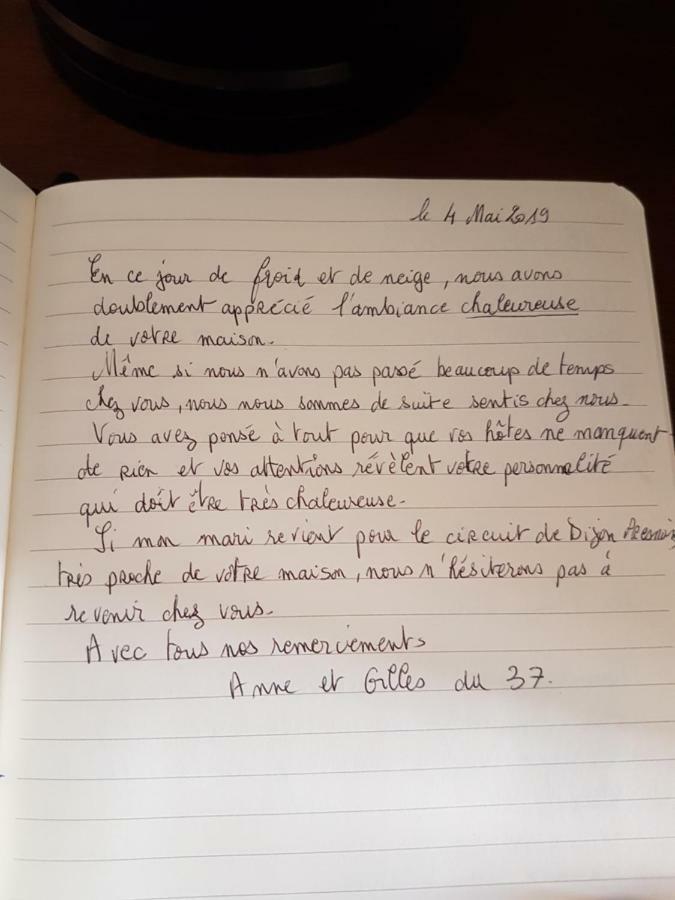 le 4 Mai 2019
En ce jour de froid et de neige, nous avons
doublement apprécié l'ambiance chaleureuse
de votre maison.
Même si nous n'avons pas passé beaucoup de temps
chez vous, nous nous sommes de suite sentis chez nous.
Vous avez pensé à tout pour que vos hôtes ne manquent
de rien et vos attentions révèlent votre personnalité
qui doit être très chaleureuse.
Si mon mari revient pour le circuit de Dijon Prenois,
très proche de votre maison, nous n'hésiterons pas à
revenir chez vous.
Avec tous nos remerciements
Anne et Gilles du 37.